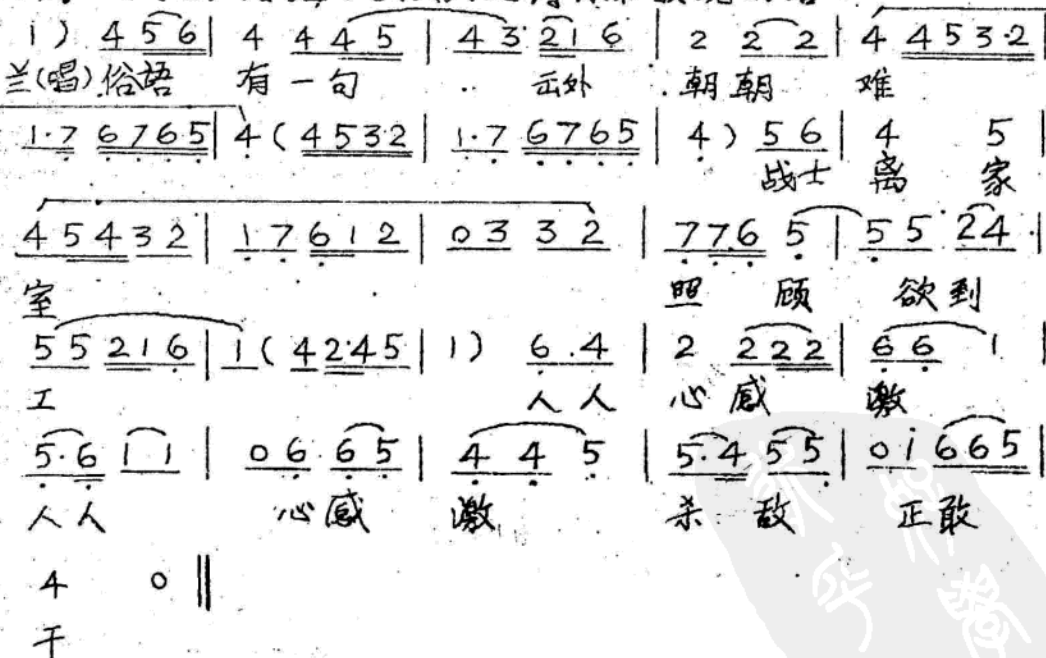 1) 4 56 | 4 4 45 | 43 21 6 | 2 2 2 | 4 453·2 |
兰(唱)俗语 有一句 云外 朝朝 难
1·7 6765 | 4 (4532 | 1·7 6765 | 4) 56 | 4 5 |
战士 离 家
45432 | 17612 | 03 32 | 776 5 | 55 24 |
室 照 顾 欲到
55 216 | 1 (42·45 | 1) 6.4 | 2 222 | 66 1 |
工 人人 心感 激
5·6 11 | 06 65 | 44 5 | 5·4 55 | 0i 665 |
人人 心感 激 杀 敌 正敢
4 0 ‖
干